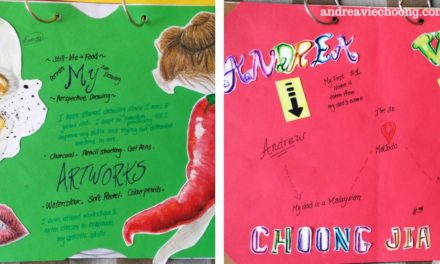 andreaviechoong.com
Still-life ~ Food
~ Drawing
My
~ Perspective Drawing ~
I have started drawing since I was 5
years old. I keep on practising to
improve my skills and trying out different
mediums in art.
• Charcoal • Pencil shading • Gel Pens
ARTWORKS
• Watercolour • Soft Pastel • Colour pencils •
I even attend workshops &
extra classes to enhance
my artistic skills.
ANDREA
V
My First #1
Name is
taken from
my dad's name
Andrew
I'm in
Malindo
My dad is a Malaysian
CHOONG JIA